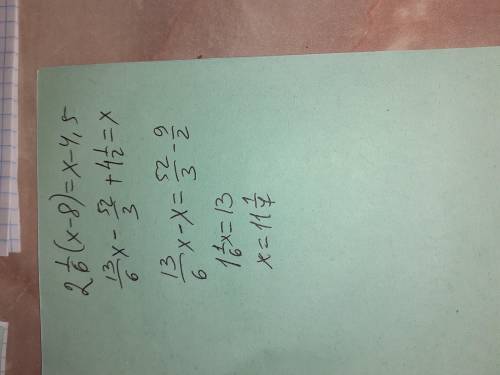 2 1/6 (x-8)=x-4,5
13/6 x - 52/3 + 4 1/2 = x
13/6 x - x = 52/3 - 9/2
1 1/6 x = 13
x = 11 1/7